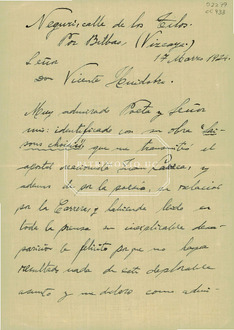 Neguri, calle de los Tilos.
Por Bilbao. (Vizcaya).
17 Marzo 1924.
Señor
Don Vicente Huidobro.
Muy admirado Poeta y Señor
mio: identificado con su obra
que me transmitió el
apostol creacionista Juan Larrea, y
ademas de por la poesía, en relación
por la Carrera, y habiendo leido en
toda la prensa su
le felicito porque no haya
resultado nada de este deplorable
asunto y un doloroso, como